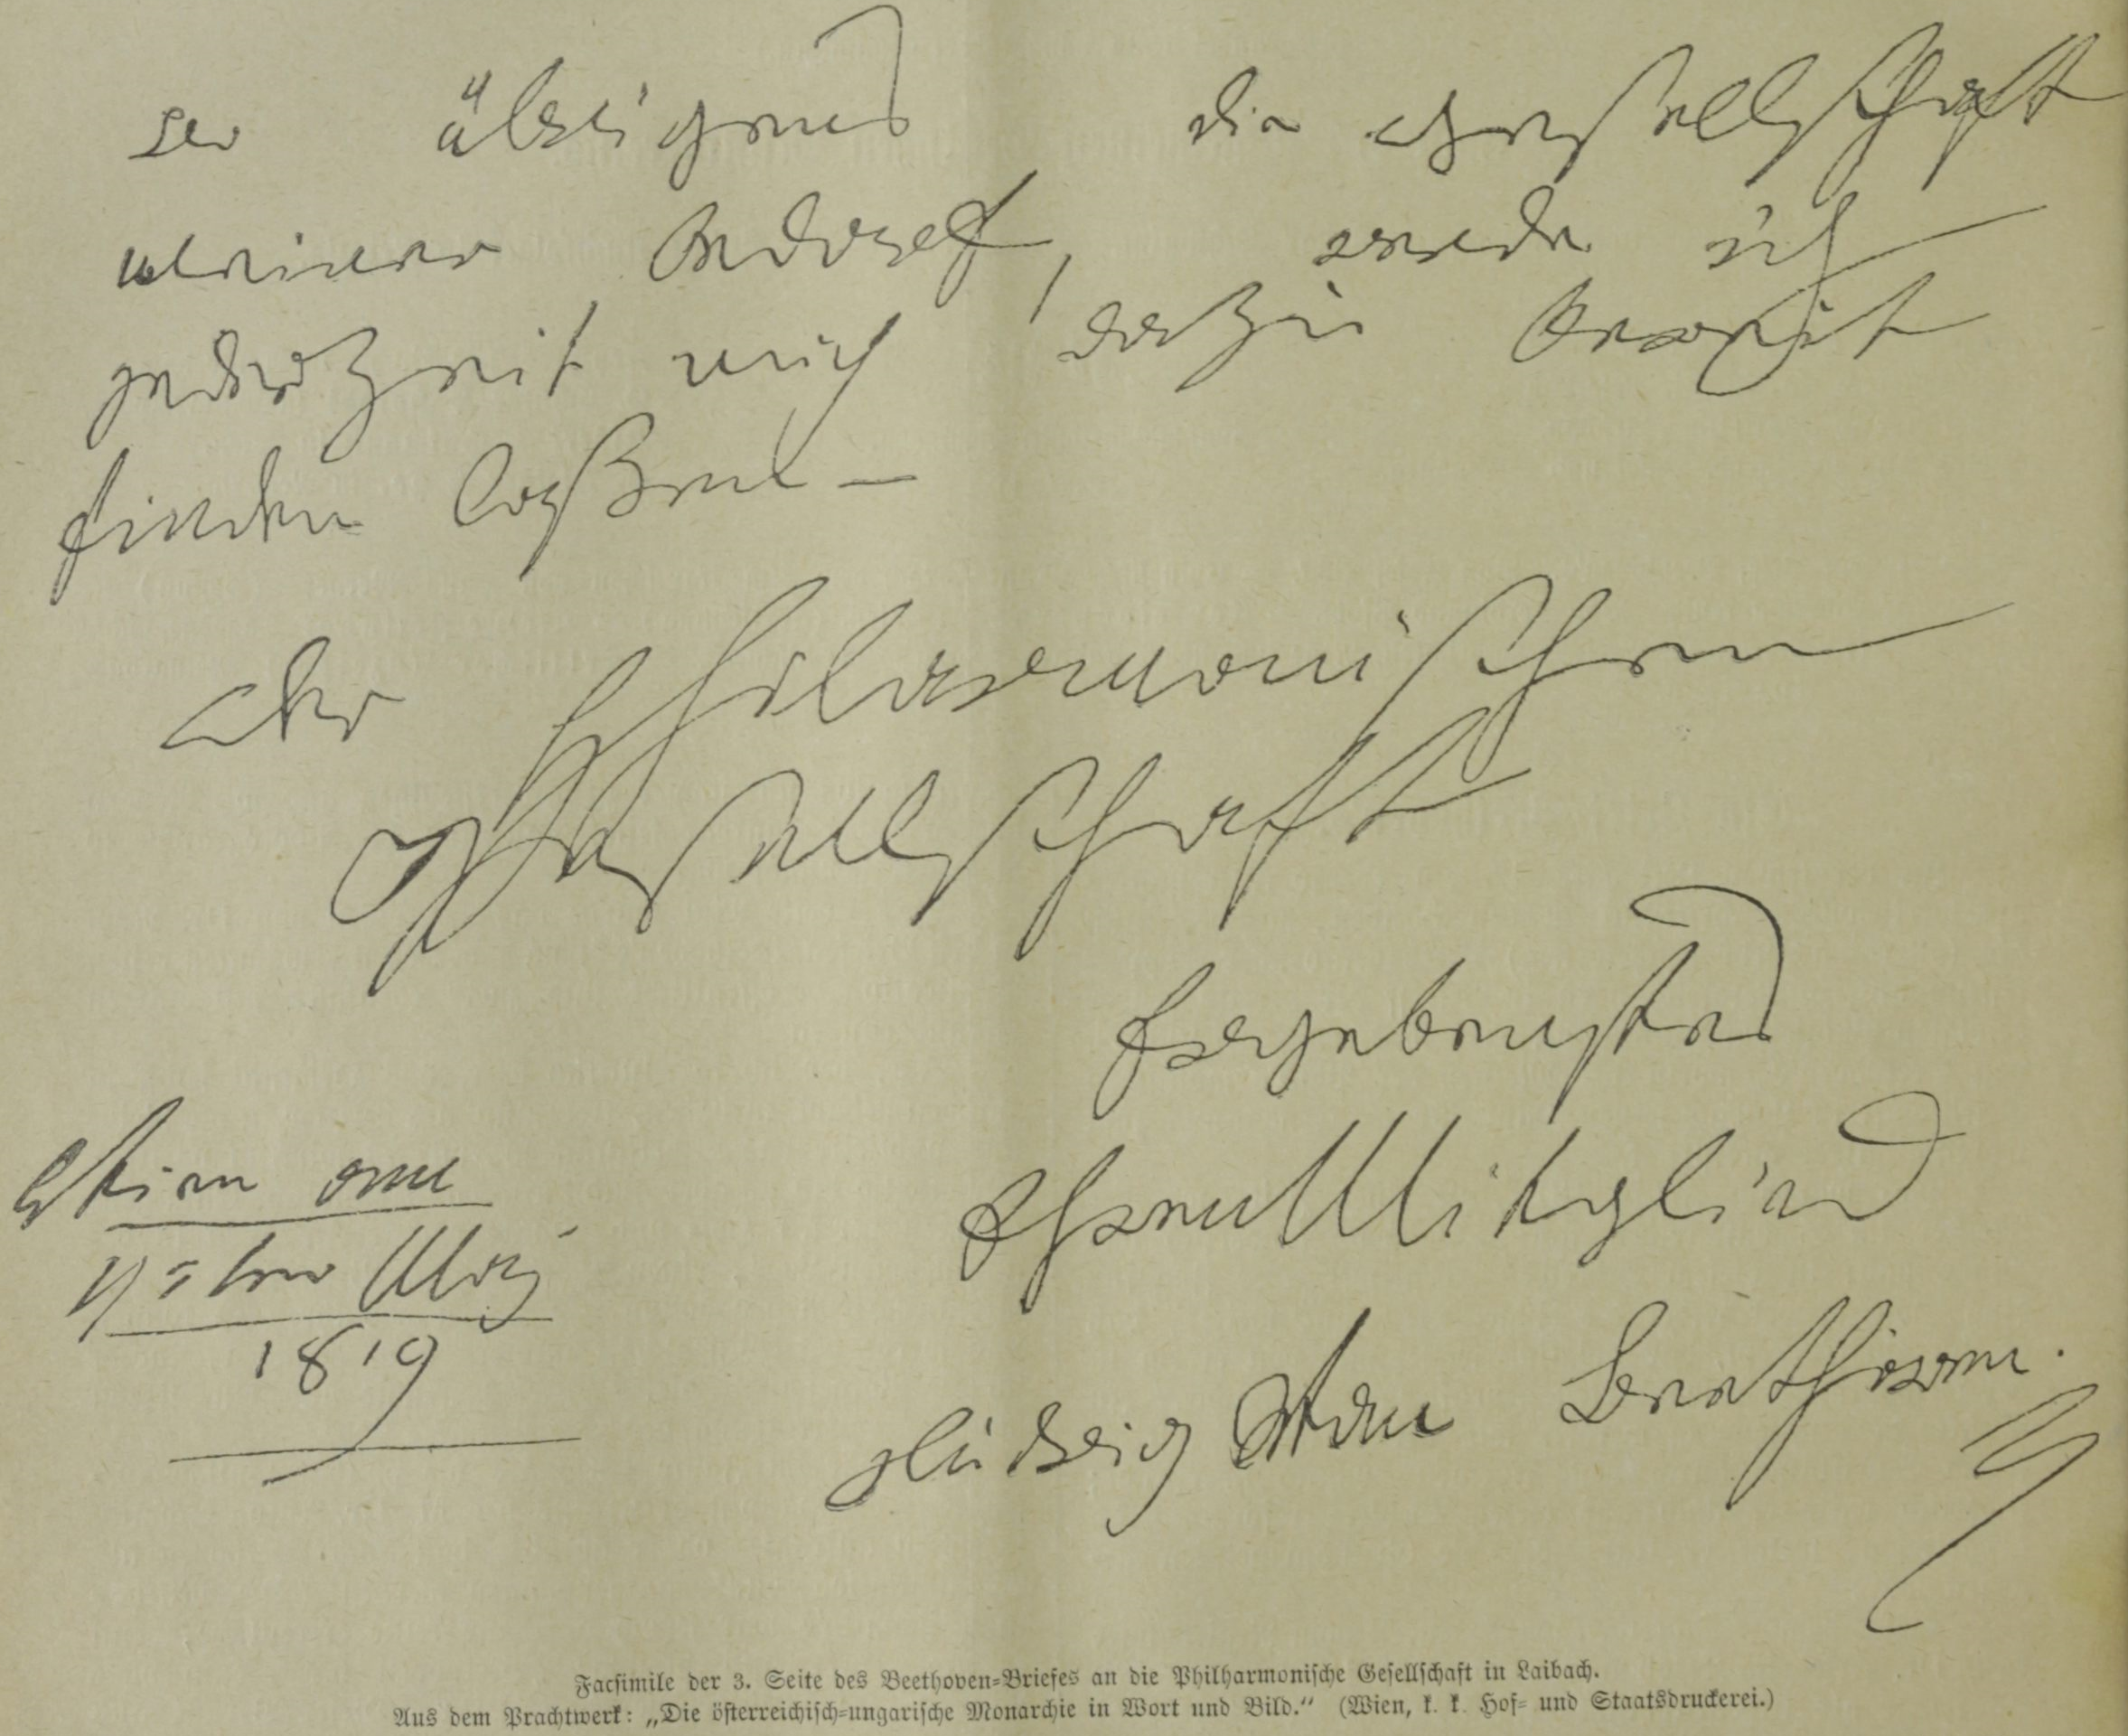 übrigens die Gesellschaft
meiner Bedarf, werde ich
jederzeit mich dazu bereit
finden laßen –
der Philarmonischen
Gesellschaft
Ergebenstes
EhrenMitglied
Wien am
4=ten May
1819
Ludwig van Beethoven.
Facsimile der 3. Seite des Beethoven-Briefes an die Philharmonische Gesellschaft in Laibach.
Aus dem Prachtwerk: „Die österreichisch-ungarische Monarchie in Wort und Bild.“ (Wien, k. k. Hof- und Staatsdruckerei.)